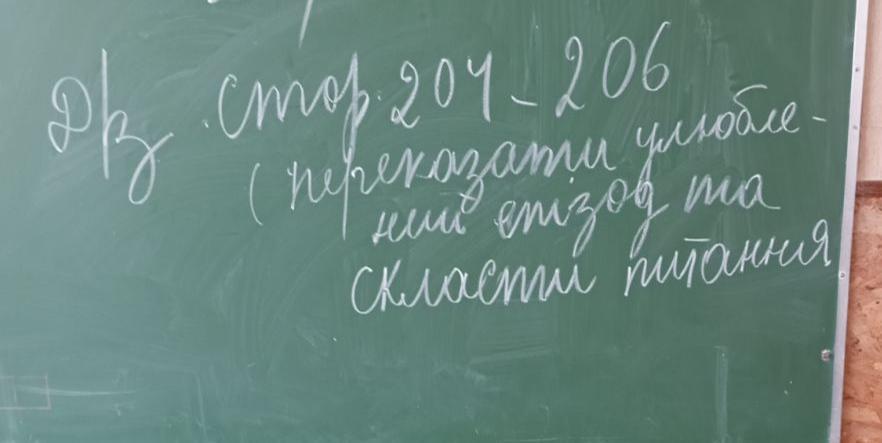 Д/з. Стор. 204-206
(переказати улюбле-
ний епізод та
скласти питання